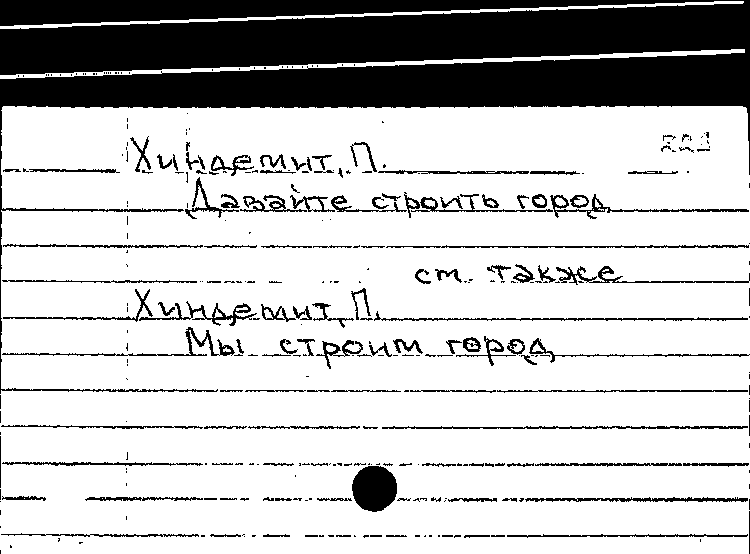 Хиндемит, П.
Давайте строить город
см. также
Хиндемит, П.
Мы строим город